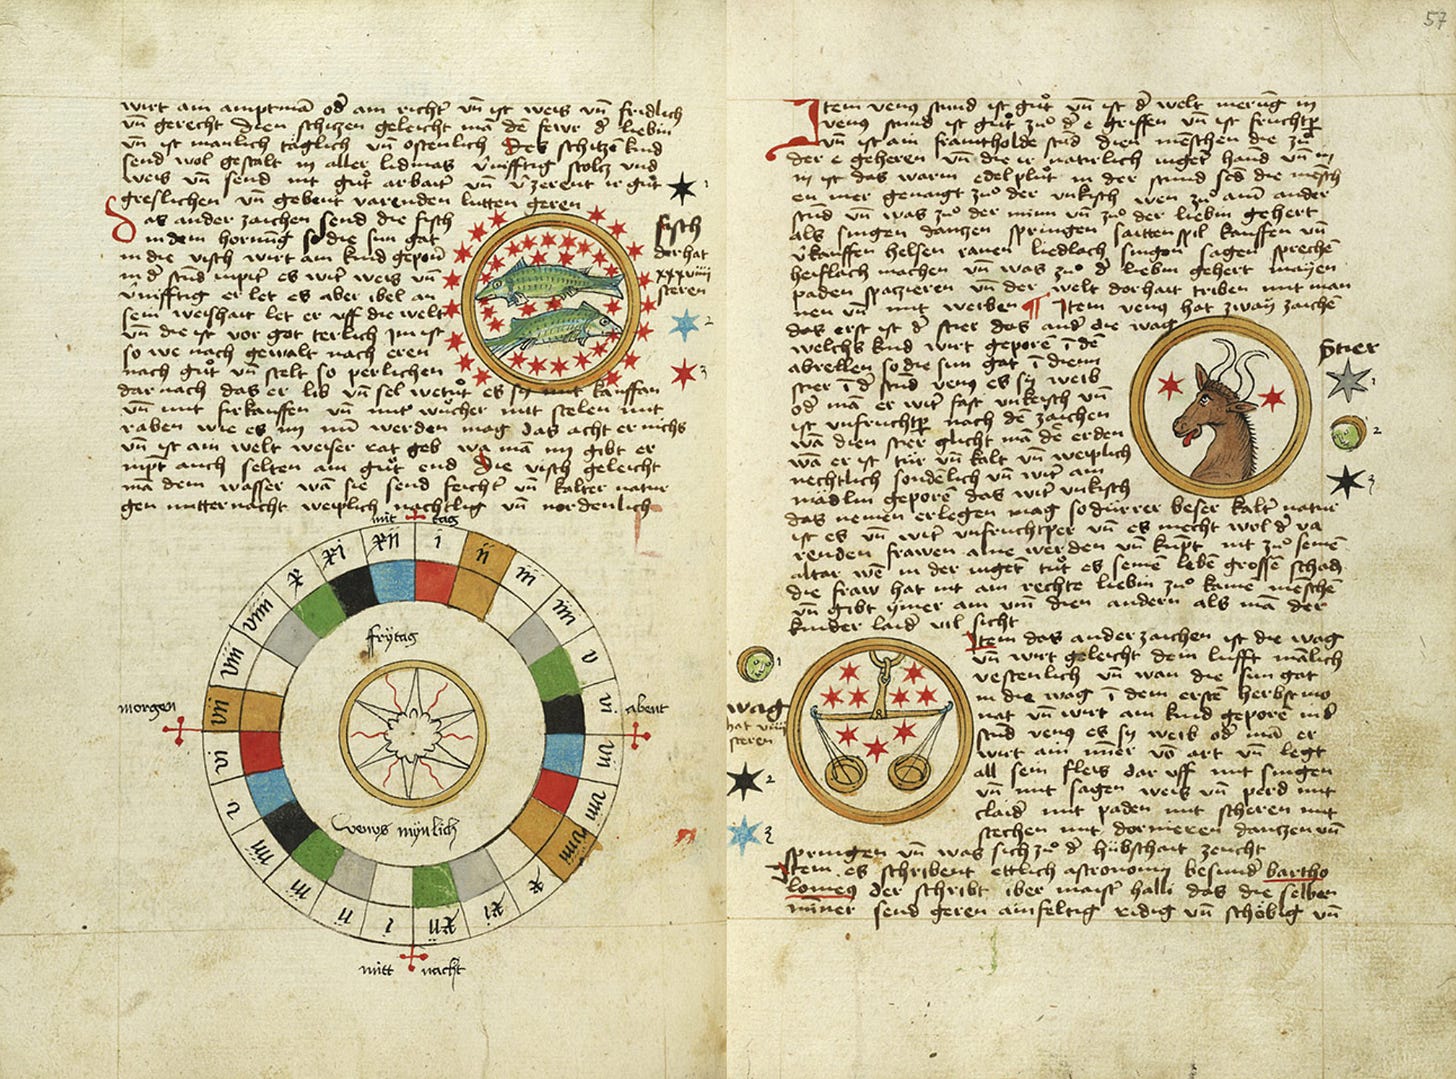 wirt am amptmā od̄ am richt͛ vn̄ ist weis vn̄ fridlich
vn̄ gerecht dien schiczen geleicht mā dē fewr d͛ liebin
vn̄ ist manlich täglich vn̄ ostenlich Des schiczē kind
send wol gestalt in aller lidmas v̄nifftig stolcz vnd
weis vn̄ send mit gůt arbait͛ vn̄ v͛zerent ir gůt
greslichen vn̄ gebent varenden lutten geren
Das ander zaichen send die fisch
in dem hornūg so die sun gat
in die visch wirt am kind geporn̄
in d͛ stūd iupit͛ es wirt weis vn̄
v̄nifftig er let es aber ibel an
sein weishait let er vff die welt
vn̄ die ist vor got terlich im ist
so we nach gewalt nach eren
nach gůt vn̄ stelt so perlichen
dar nach das er lib vn̄ sel wetrůt es sy mit kauffan
vn̄ mit firkauffen vn̄ mit wůcher mit stelen mit
raben wie es im nū werden mag das acht er nichs
vn̄ ist am welt weiser rat geb wa mā im gibt er
nimpt auch selten am gůt end Die visch geleicht
mā dem wasser wā sie send feicht vn̄ kalter natur
gen mitternacht weiplich nachtlig vn̄ nordenlich
fisch
der hat
xxxviiii
steren
1
2
3
mit tag
i ii iii iiii v vi vii viii viiii x xi xii
i ii iii iiii v vi vii viii viiii x xi xii
frÿtag
morgen
abent
venus mÿnlich
mitt nacht
57
Item venus stund ist gůt vn̄ ist d͛ welt merūg in
venus stund ist gůt zů d͛ e griffen vn̄ ist fruchtp͛
vn̄ ist am framtholde stūd dien menschen die zů
der e geheren vn̄ die ir naturlich inget hand vn̄ in
in ist das warm edel plůt in der stund send die mēsch
en mer genaigt zů der vnkisch wen zů am ander
stūd vn̄ was zů der minn vn̄ zů der liebin gehert
als singen danczen springen saittenspil kauffen vn̄
v͛kauffen helsen raven liedlach singen sagen sprechē
heislach machen vn̄ was zů d͛ liebin gehert mayen
paden spaczieren vn̄ der welt dorhait triben mit man
nen vn̄ mit weiben ¶ Item venus hat zway zaichē
das erst ist d͛ stier das and͛ die wag
welchs kind wirt geporē ī dē
abrellen so die sun gat ī dienn
stier ī d͛ stūd venus es sÿ weib
od͛ mā er wirt fast vnkisch vn̄
ist vnfruchtp͛ nach dē zaichen
wā dien stier glicht mā dē erden
wā er ist tür vn̄ kalt vn̄ weiplich
nechtlich sondēlich vn̄ wirt am
mädlin geporē das wirt vnkisch
das nemen erlegen mag so dürrer beser kalt͛ natur
ist es vn̄ wirt vnfruchtper vn̄ es mecht wol d͛ va
renden frawen aine werden vn̄ kumpt nit zů seinē
altar wē in der inget tůt es seinē lebē grossē schad
die fraw hat nit am rechte liebin zů kainē mēschē
vn̄ gibt ymer am vm dien andern als mā der
kinder laid͛ vil sicht
Stier
1
2
3
Item das ander zaichen ist die wag
vn̄ wirt geleicht dem lufft mälich
vestenlich vn̄ wan die sun gat
in die wag ī dem erstē herbst mo
nat vn̄ wirt am kind geporē in d͛
stūd venus es sÿ weib od͛ mā er
wirt ain mer vō art vn̄ legt
all sein fleis dar vff mit singen
vn̄ mit sagen weis vn̄ perd mit
claid͛ mit paden mit scheren mit
stechen mit dornieren danczen vn̄
springen vn̄ was sich zů d͛ hübschait zeucht
wag
hat viiii
steren
1
2
3
Item es schribent ettlich astronomÿ besund͛ bartho
lomeus der schribt iber maist͛ halli das die selben
inner send geren ainfeltig ridig vn̄ schöbig vn̄